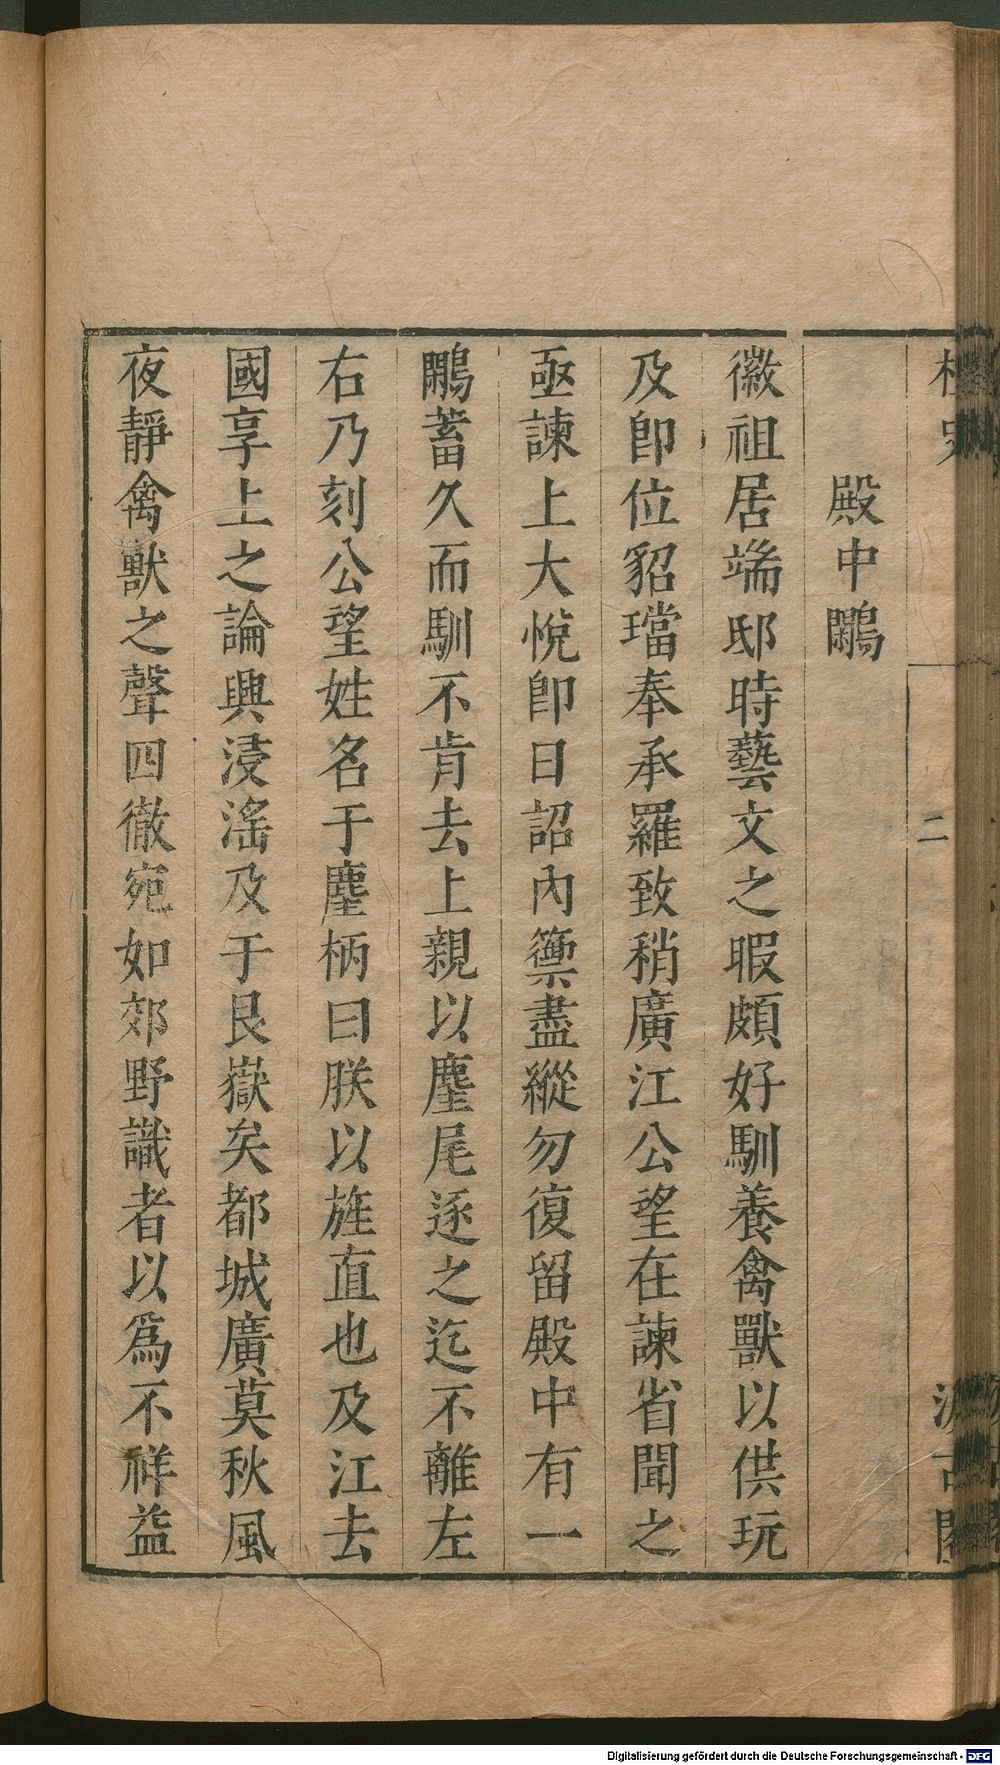 殿中鷴
徽祖居端邸時藝文之暇頗好馴養禽獸以供玩
及卽位貂璫奉承羅致稍廣江公望在諫省聞之
亟諫上大悅卽日詔內籞盡縱勿復留殿中有一
鷴蓄久而馴不肯去上親以麈尾逐之迄不離左
右乃刻公望姓名于麈柄曰朕以旌直也及江去
國享上之論興浸淫及于艮嶽矣都城廣莫秋風
夜靜禽獸之聲四徹宛如郊野識者以爲不祥益
二
Digitalisierung gefördert durch die Deutsche Forschungsgemeinschaft - DFG